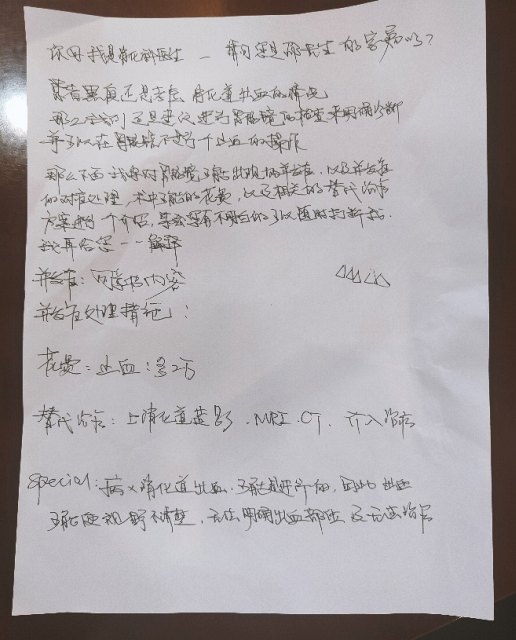 你好我是消化科医生 — 请问您是 医生的家属吗?
患者 还是考虑消化道出血的情况
那么我们还是建议进行胃肠镜的检查来明确诊断
并可以在胃肠镜下进行个止血的操作
那么下面我将对胃肠镜可能出现的并发症,以及并发症
的对应处理,术中可能的花费,以及相关的替代治疗
方案进行个介绍,若您有不明白的可以随时打断我.
我再给您一一解释
并发症:同 内容
并发症处理措施:
花费:止血:多2万
替代治疗:上消化道造影.MRI.CT.介入治疗
Special:病 消化道出血,可能是 ,因此出血
可能使视野不清楚,无法明确出血部位及无法治疗